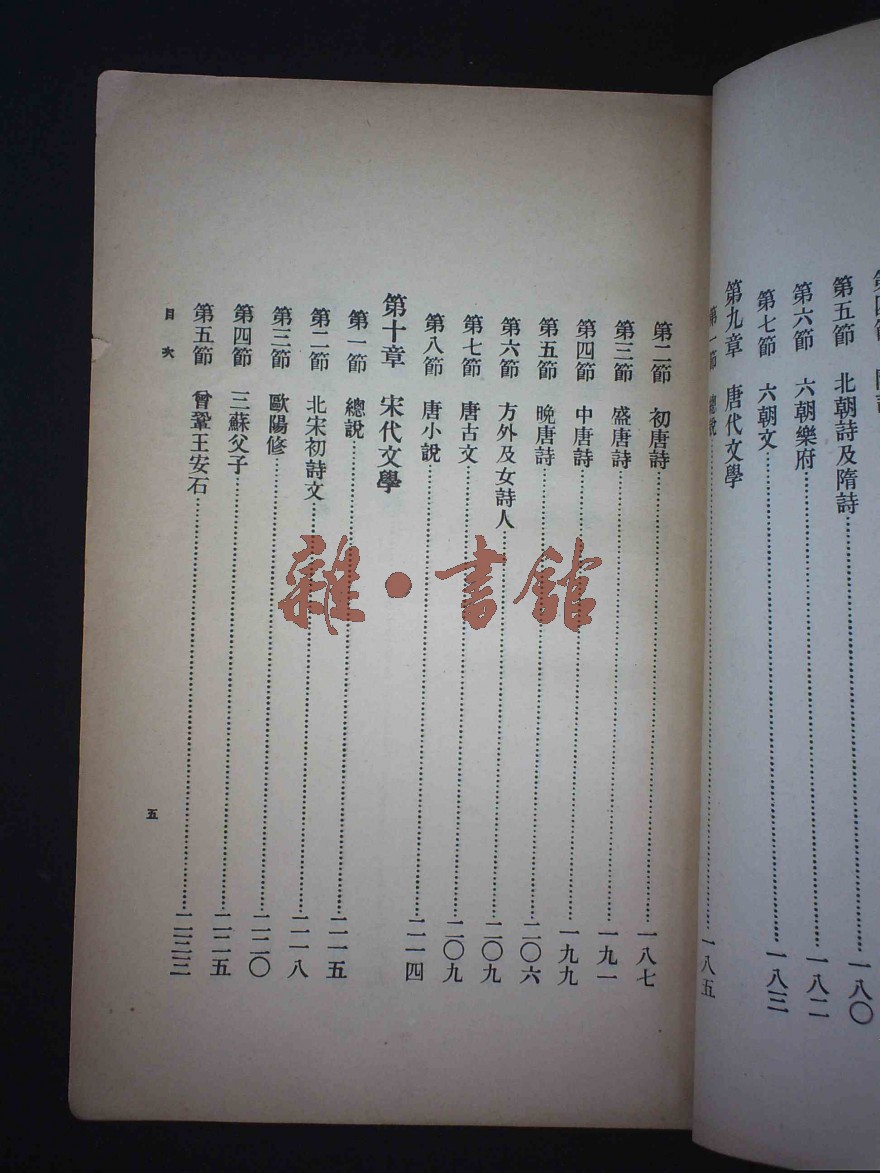 第五節 北朝詩及隋詩……一八〇
第六節 六朝樂府……一八二
第七節 六朝文……一八三
第九章 唐代文學
第一節 總說……一八五
第二節 初唐詩……一八七
第三節 盛唐詩……一九一
第四節 中唐詩……一九九
第五節 晚唐詩……二〇六
第六節 方外及女詩人……二〇九
第七節 唐古文……二〇九
第八節 唐小說……二一四
第十章 宋代文學
第一節 總說……二一五
第二節 北宋初詩文……二一八
第三節 歐陽修……二二〇
第四節 三蘇父子……二二五
第五節 曾鞏王安石……二三三
目次
五
雜·書館